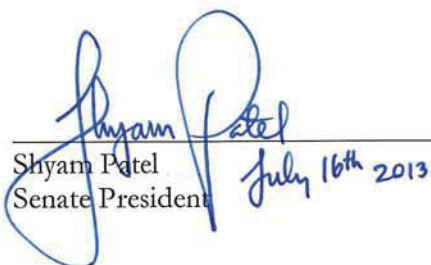 Shyam Patel
Shyam Patel
Senate President
July 16th 2013